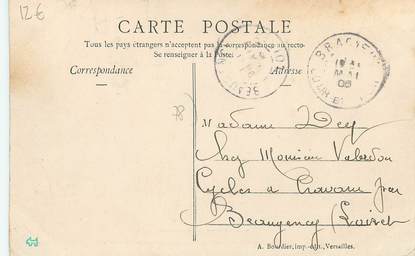 12€
CARTE POSTALE
Tous les pays étrangers n'acceptent pas la correspondance au recto.
Se renseigner à la Poste.
Correspondance
Adresse
MAI
06
78
Madame Dey
Chez Monsieur
Cycles à Travers par
Beaugency (Loiret)
A. Bourdier, imp.-édit., Versailles.